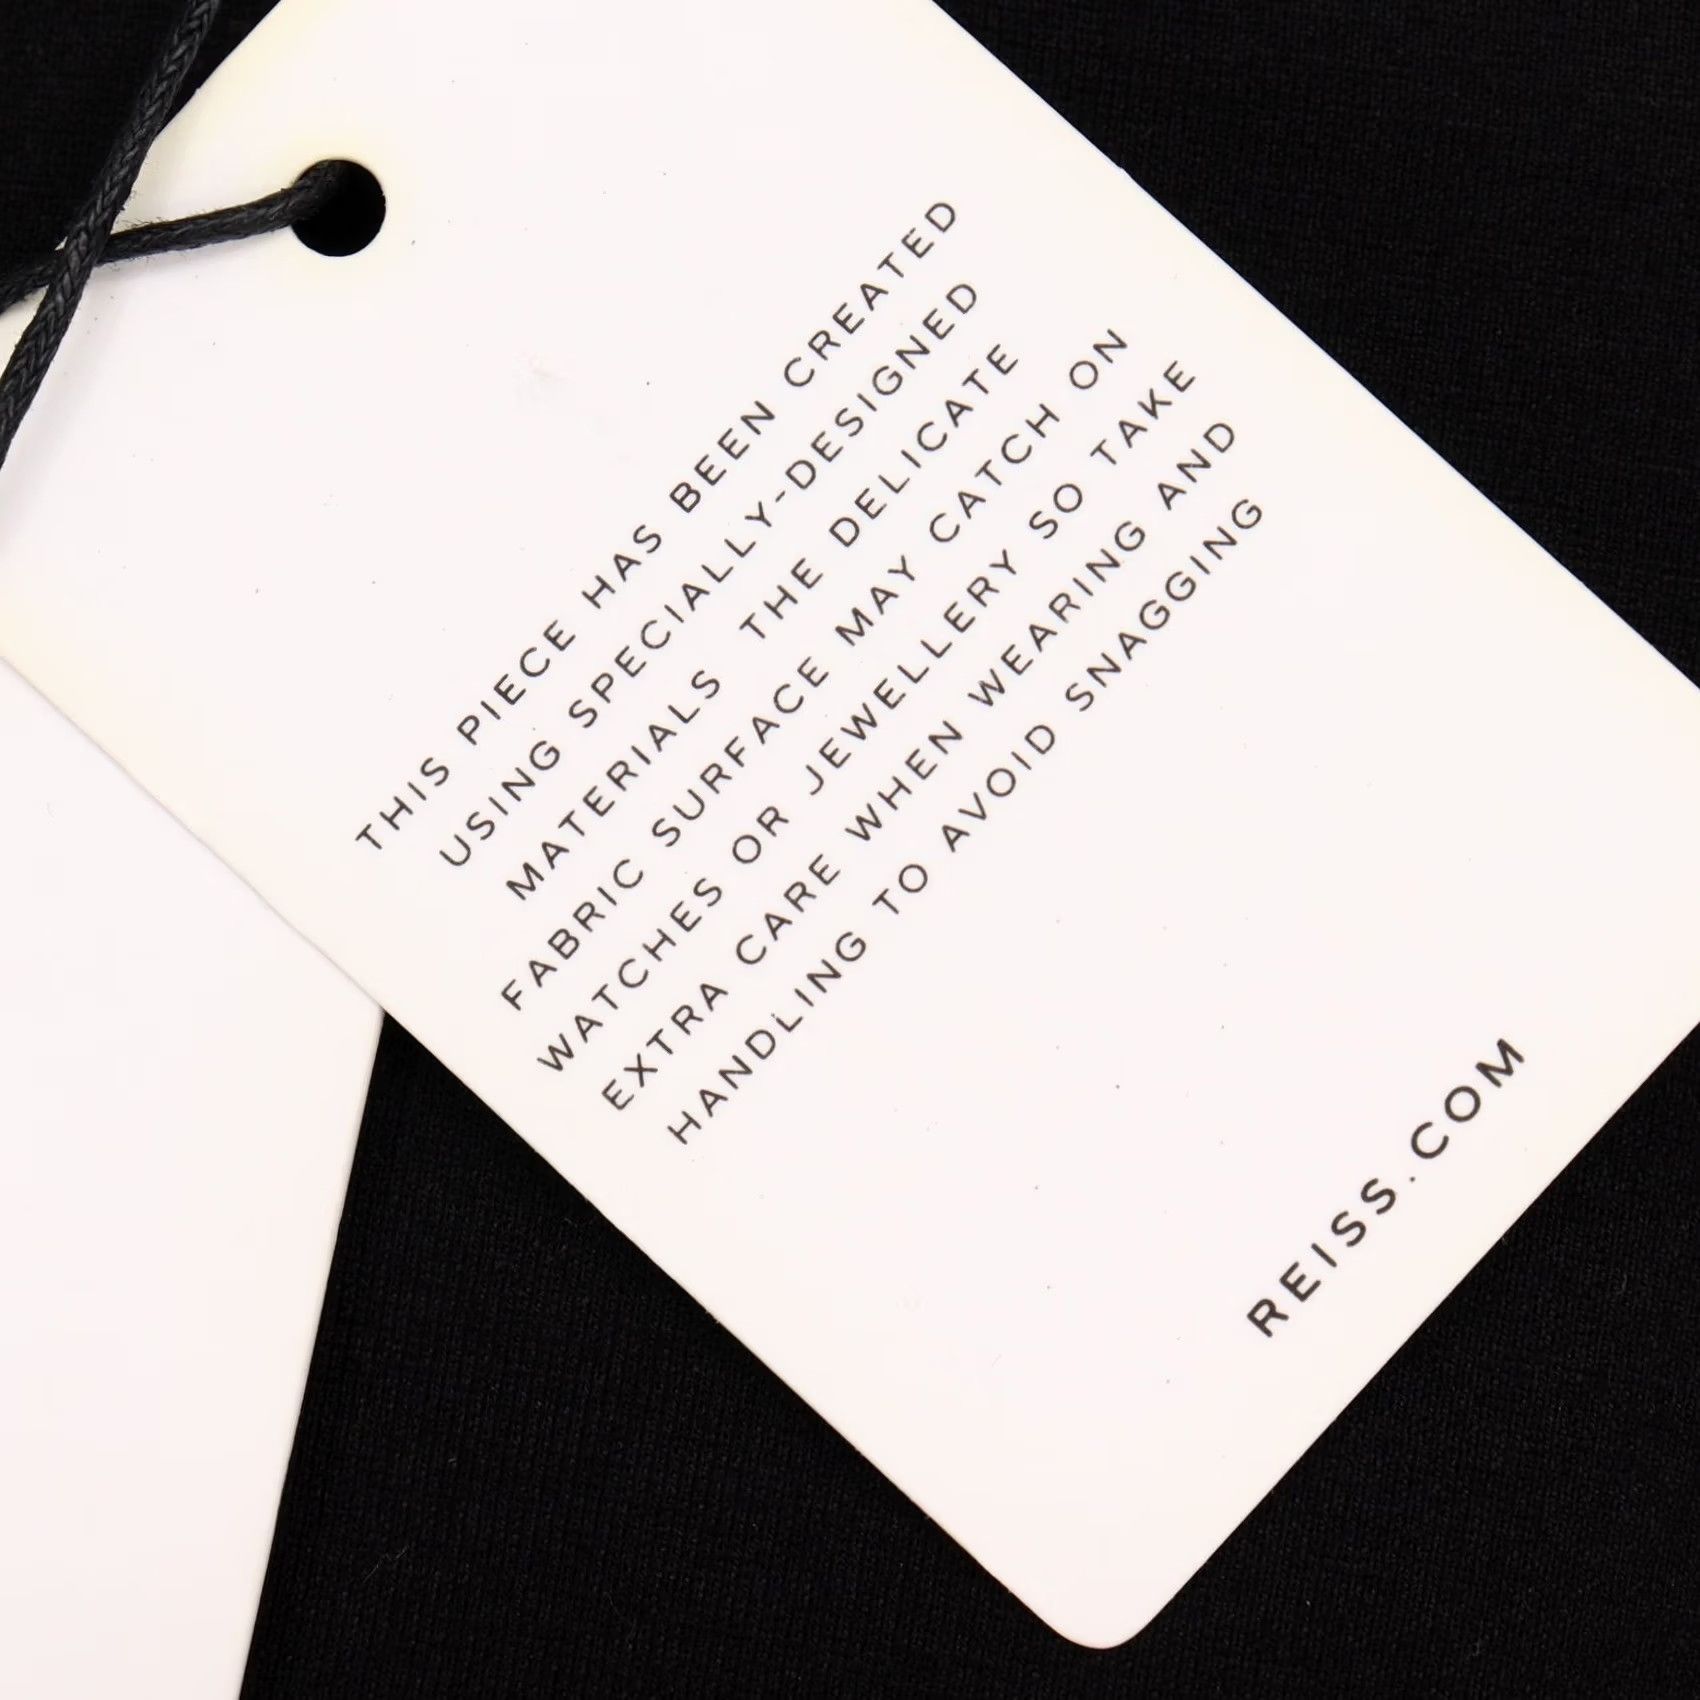 THIS PIECE HAS BEEN CREATED
USING SPECIALLY-DESIGNED
MATERIALS THE DELICATE
FABRIC SURFACE MAY CATCH ON
WATCHES OR JEWELLERY SO TAKE
EXTRA CARE WHEN WEARING AND
HANDLING TO AVOID SNAGGING
REISS.COM